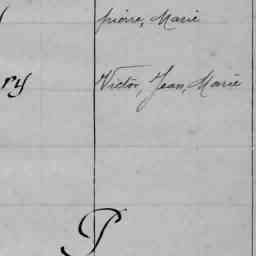 pierre, Marie
ry Victor, Jean, Marie
P